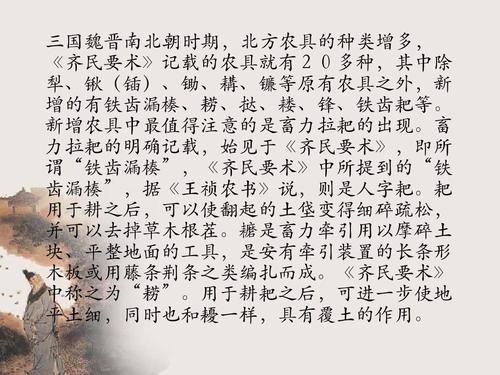 三国魏晋南北朝时期，北方农具的种类增多，
《齐民要术》记载的农具就有２０多种，其中除
犁、锹（锸）、锄、耩、镰等原有农具之外，新
增的有铁齿漏楱、耢、挞、耧、锋、铁齿耙等。
新增农具中最值得注意的是畜力拉耙的出现。畜
力拉耙的明确记载，始见于《齐民要术》，即所
谓“铁齿漏楱”，《齐民要术》中所提到的“铁
齿漏楱”，据《王祯农书》说，则是人字耙。耙
用于耕之后，可以使翻起的土垡变得细碎疏松，
并可以去掉草木根茬。耱是畜力牵引用以摩碎土
块、平整地面的工具，是安有牵引装置的长条形
木板或用藤条荆条之类编扎而成。《齐民要术》
中称之为“耢”。用于耕耙之后，可进一步使地
平土细，同时也和耰一样，具有覆土的作用。